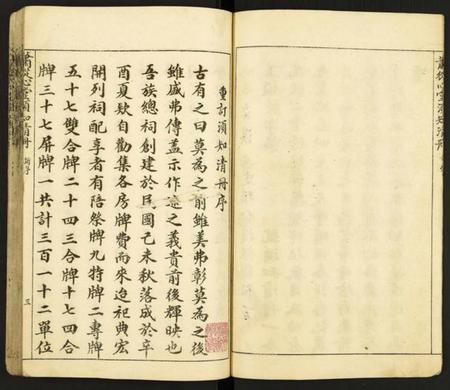 重訂須知清冊序
古有之曰莫為之前雖美弗彰莫為之後
雖盛弗傳蓋示作述之義貴前後輝映也
吾族總祠創建於民國己未秋落成於辛
酉夏欵自勸集各房牌費而來迨祀典宏
開列祠配享者有陪祭牌九特牌二專牌
五十七雙合牌二十四三合牌十七四合
牌三十七屏牌一共計三百一十二單位
三